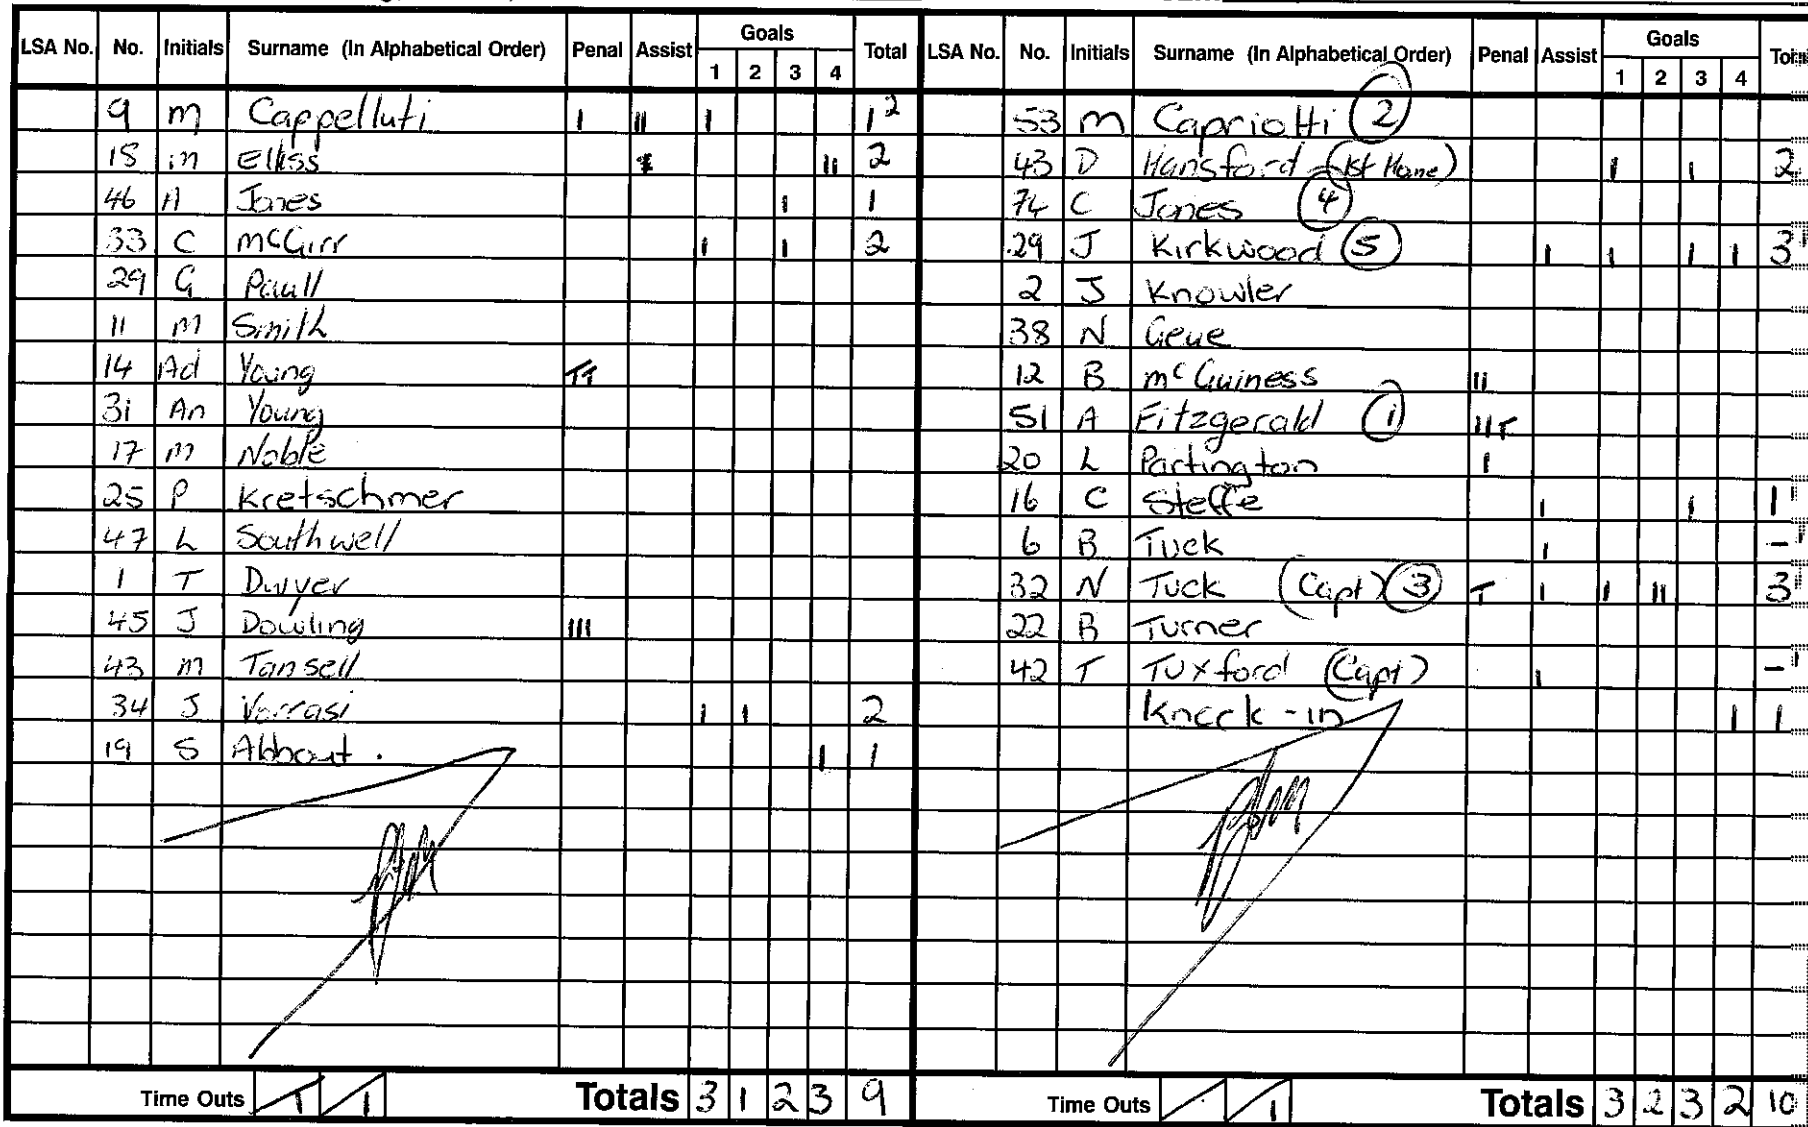 LSA No. No. Initials Surname (In Alphabetical Order) Penal Assist Goals 1 2 3 4 Total
9 M Cappelluti I II I 1 2
15 m Elliss II 2
46 A Jones I 1
33 C McGirr I I 2
29 G Paull
11 M Smith
14 Ad Young TT
31 An Young
17 M Noble
25 P Kretschmer
47 L Southwell
1 T Dwyer
45 J Dowling III
43 M Tansell
34 J Varrasi I I 2
19 S Abbout . I 1
Time Outs T 1 Totals 3 1 2 3 9
LSA No. No. Initials Surname (In Alphabetical Order) Penal Assist Goals 1 2 3 4
53 M Capriotti 2
43 D Hansford (1st Home) I I 2
74 C Jones 4
29 J Kirkwood 5 I I I I 3
2 J Knowler
38 N Geue
12 B McGuiness II
51 A Fitzgerald 1 IIT
20 L Partington I
16 C Steffe I I 1
6 B Tuck I -
32 N Tuck (Capt) 3 T I I II 3
22 B Turner
42 T Tuxford (Capt) I -
Knock-in I 1
Time Outs 1 Totals 3 2 3 2 10